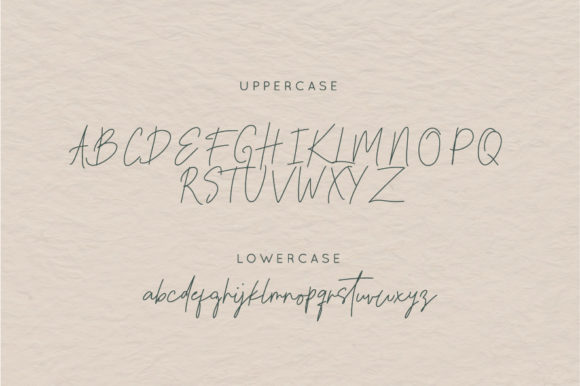 UPPERCASE
ABCDEFGHIKLMNOPQ
RSTUVWXYZ
LOWERCASE
abcdefghijklmnopqrstuvwxyz